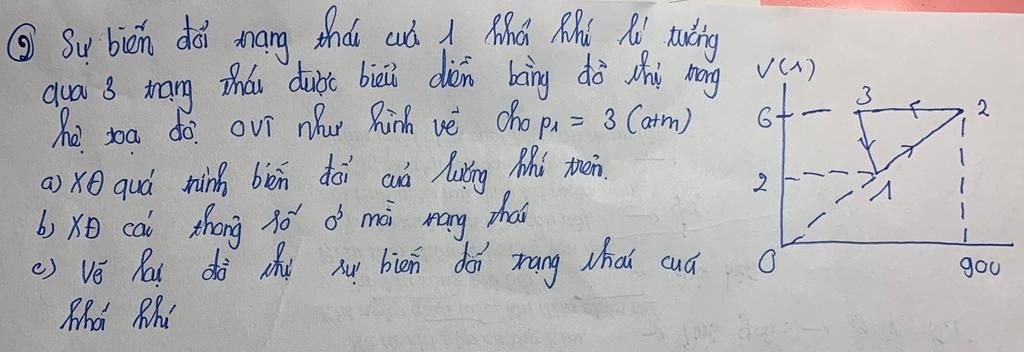 9 Sự biến đổi trạng thái của 1 khối khí lí tưởng
qua 3 trạng thái được biểu diễn bằng đồ thị trong
hệ toạ độ OVT như hình vẽ cho p1 = 3 (atm)
a) XĐ quá trình biến đổi của lượng khí trên.
b) XĐ các thông số ở mỗi trạng thái
c) Vẽ lại đồ thị sự biến đổi trạng thái của
khối khí
V(l)
6 3 2
2 1
0 900